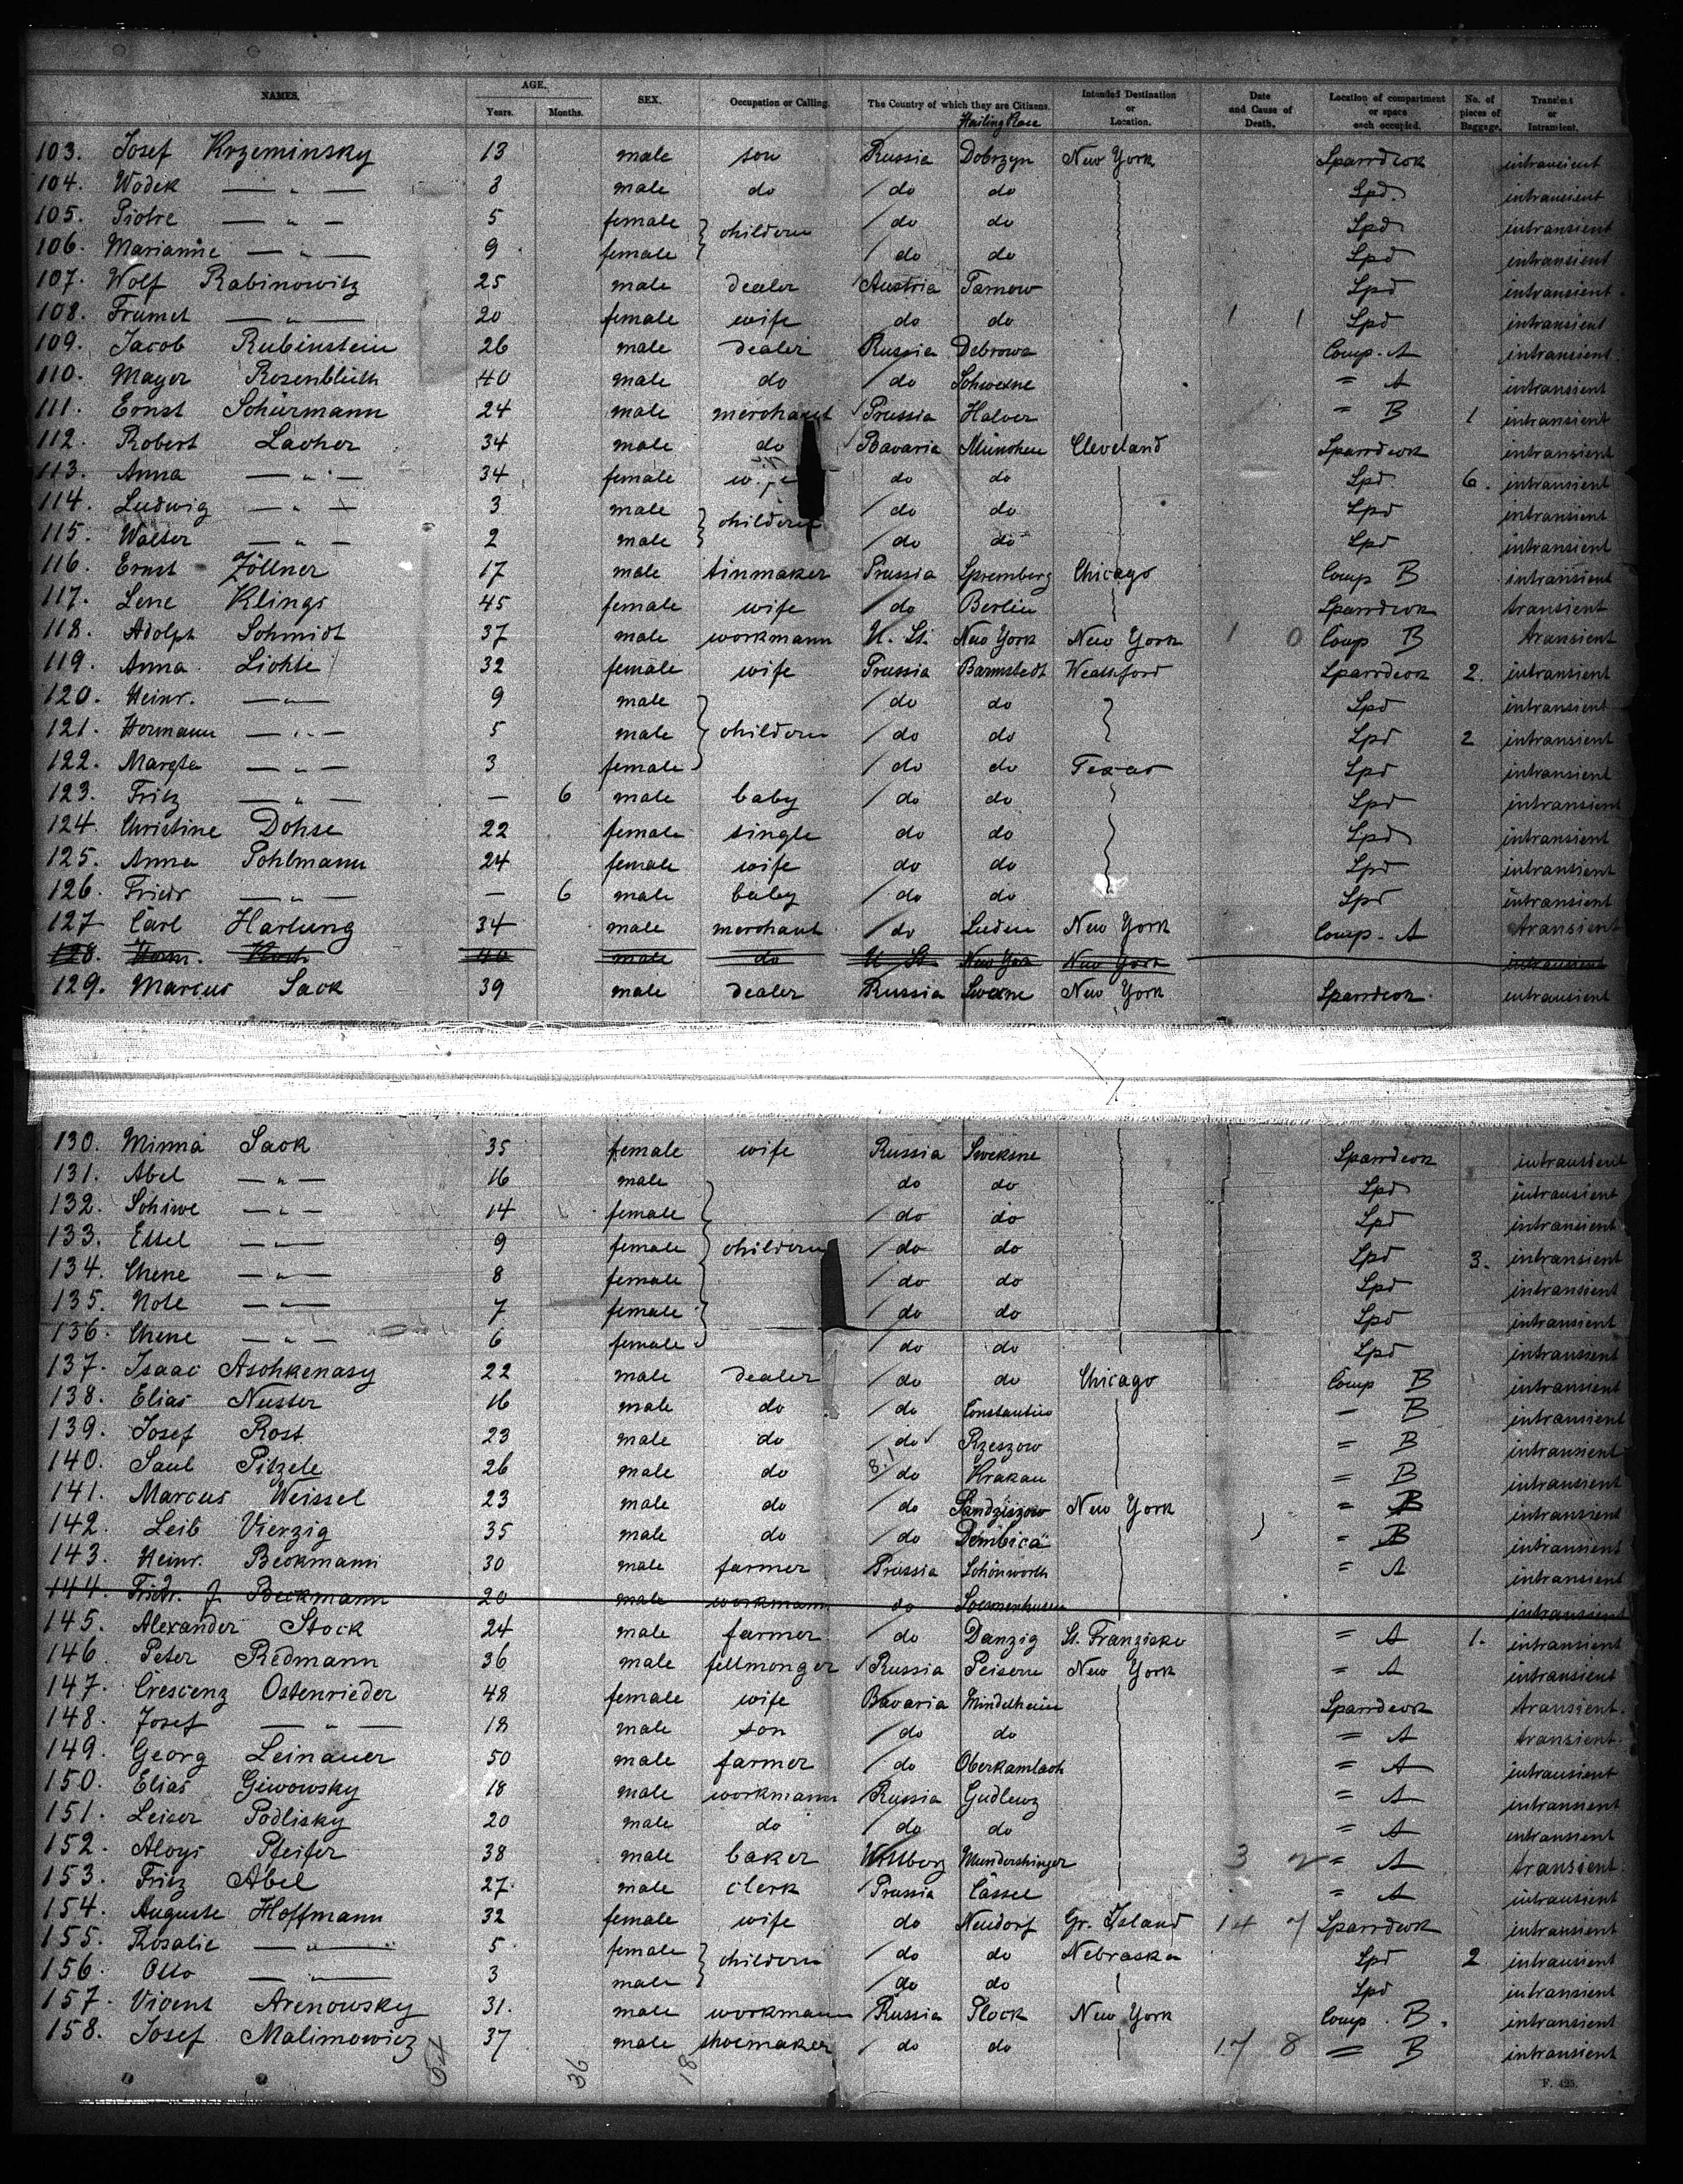 NAMES. AGE. SEX. Occupation or Calling. The Country of which they are Citizens. Intended Destination or Location. Date and Cause of Death. Location of compartment or space each occupied. No. of pieces of Baggage. Transient or Intransient.
Years. Months.
103. Josef Krzeminsky 13 male son Russia Dobrzyn New York Sparrdeck intransient
104. Wodek — " — 8 male do do do Spd. intransient
105. Piotre — " — 5 female children do do Spd intransient
106. Marianne — " — 9 female do do Spd intransient
107. Wolf Rabinowitz 25 male dealer Austria Tarnow Spd intransient
108. Frumet — " — 20 female wife do do 1 1 Spd intransient
109. Jacob Rubinstein 26 male dealer Russia Debrowa Comp. A intransient
110. Mayer Rosenblüth 40 male do do Schwexne = A intransient
111. Ernst Schürmann 24 male merchant Prussia Halver = B 1 intransient
112. Robert Lacher 34 male do Bavaria München Cleveland Sparrdeck intransient
113. Anna — " — 34 female wife do do Spd 6. intransient
114. Ludwig — " — 3 male children do do Spd intransient
115. Walter — " — 2 male do do Spd intransient
116. Ernst Zöllner 17 male tinmaker Prussia Spremberg Chicago Comp B intransient
117. Lene Klings 45 female wife do Berlin Sparrdeck transient
118. Adolph Schmidt 37 male workmann U. St. New York New York 1 0 Comp B transient
119. Anna Lichte 32 female wife Prussia Barmstedt Sparrdeck 2. intransient
120. Heinr. — " — 9 male do do Spd intransient
121. Hermann — " — 5 male children do do Spd 2 intransient
122. Margta — " — 3 female do do Texas Spd intransient
123. Fritz — " — — 6 male baby do do Spd intransient
124. Christine Dohse 22 female single do do Spd intransient
125. Anna Pohlmann 24 female wife do do Spd intransient
126. Friedr — " — — 6 male baby do do Spd intransient
127 Carl Hartung 34 male merchant do New York Comp. A transient
128. Herm. Koch 40 male do U St New York New York intransient
129. Marcus Sack 39 male dealer Russia Swexne New York Sparrdeck. intransient
130. Minna Sack 35 female wife Russia Sweksne Sparrdeck intransient
131. Abel — " — 16 male do do Spd intransient
132. Schiwe — " — 14 female do do Spd intransient
133. Ettel — " — 9 female children do do Spd 3. intransient
134. Chene — " — 8 female do do Spd intransient
135. Note — " — 7 female do do Spd intransient
136. Chene — " — 6 female do do Spd intransient
137. Isaac Aschkenasy 22 male dealer do do Chicago Comp B intransient
138. Elias Nuster 16 male do do = B intransient
139. Josef Rost 23 male do do Rzeszow = B intransient
140. Saul Pitzele 26 male do do Krakau = B intransient
141. Marcus Weissel 23 male do do New York = B intransient
142. Leib Vierzig 35 male do do Dembica = B intransient
143. Heinr. Beckmann 30 male farmer Prussia Schönworth = A intransient
144. Friedr. J Beckmann 20 male workmann do intransient
145. Alexander Stock 24 male farmer do Danzig St. Franzisko = A 1. intransient
146. Peter Redmann 36 male fellmonger Russia Peisern New York = A intransient
147. Crescenz Ostenrieder 48 female wife Bavaria Mindelheim Sparrdeck transient.
148. Josef — " — 18 male son do do = A transient.
149. Georg Leinauer 50 male farmer do Oberkamlach = A intransient
150. Elias Giwowsky 18 male workmann Russia Gudlewz = A intransient
151. Leiser Podlisky 20 male do do do = A intransient
152. Aloys Pfeifer 38 male baker Wttbberg 3 2 = A transient.
153. Fritz Abel 27. male clerk Prussia Cassel = A intransient
154. Auguste Hoffmann 32 female wife do Neudorf Gr. Island 14 7 Sparrdeck intransient
155. Rosalie — " — 5 female children do do Nebraska Spd 2 intransient
156. Otto — " — 3 male do do Spd intransient
157. Vicent Arenowsky 31. male workmann Russia Plock New York Comp. B. intransient
158. Josef Malimowicz 37 male shoemaker do do 17 8 = B intransient
36 18
F. 425.